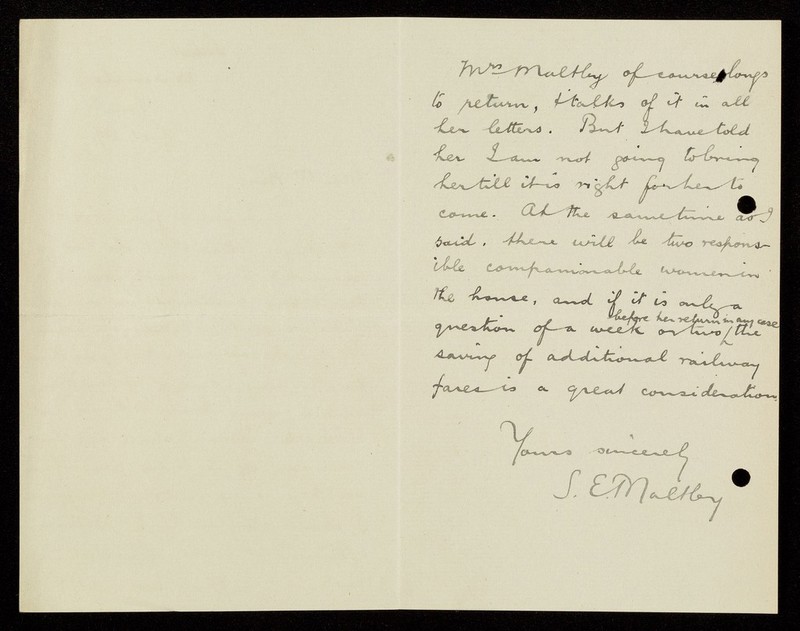 Mrs Maltby of course longs
to return, & talks of it in all
her letters. But I have told
her I am not going to bring
her till it is right for her to
come. At the same time as I
said, there will be two respons-
ible companionable women in
the house, and if it is only a
before her return in any case
question of a week or two, the
saving of additional railway
fares is a great consideration.
Yours sincerely
S. E. Maltby